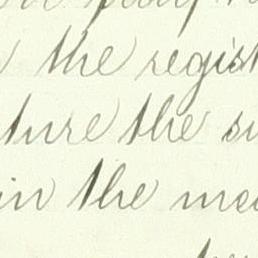 the regist
ture the su
in the mea